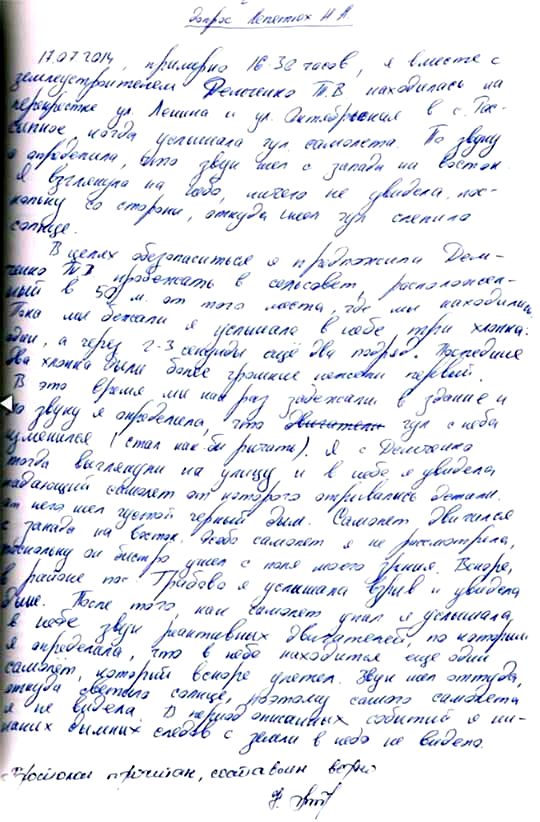 Допрос Лепетюх Н А
17.07.2014, примерно 16-30 часов, я вместе с
землеустроителем Демченко Т.В находилась на
перекрестке ул. Ленина и ул. Октябрьская в с. Рос-
сыпное, когда услышала гул самолета. По звуку
я определила, что звук шел с запада на восток.
Я взглянула на небо, ничего не увидела, пос-
кольку со стороны, откуда шел гул слепило
солнце.
В целях обезопаситься я предложила Дем-
ченко Т.В пробежать в сельсовет, расположен-
ный в 50 м. от того места, где мы находились.
Пока мы бежали я услышала в небе три хлопка:
один, а через 2-3 секунды ещё два подряд. Последние
два хлопка были более громкие нежели первый.
В это время мы как раз забежали в здание и
по звуку я определила, что двигатели гул с неба
изменился (стал как-бы рычать). Я с Демченко
тогда выглянули на улицу и в небе я увидела
падающий самолет от которого отрывались детали.
от него шел густой черный дым. Самолет двигался
с запада на восток. самолет я не рассмотрела,
поскольку он быстро ушел с поля моего зрения. Вскоре,
в районе пос. Грабово я услышала взрыв и увидела
дым. После того, как самолет упал я услышала
в небе звук реактивных двигателей, по которым
я определила, что в небе находится еще один
самолёт, который вскоре улетел. Звук шел оттуда,
откуда светило солнце, поэтому самого самолета
я не видела. В период описанных событий я ни-
каких дымных следов с земли в небо не видела.
Протокол прочитан, составлен верно